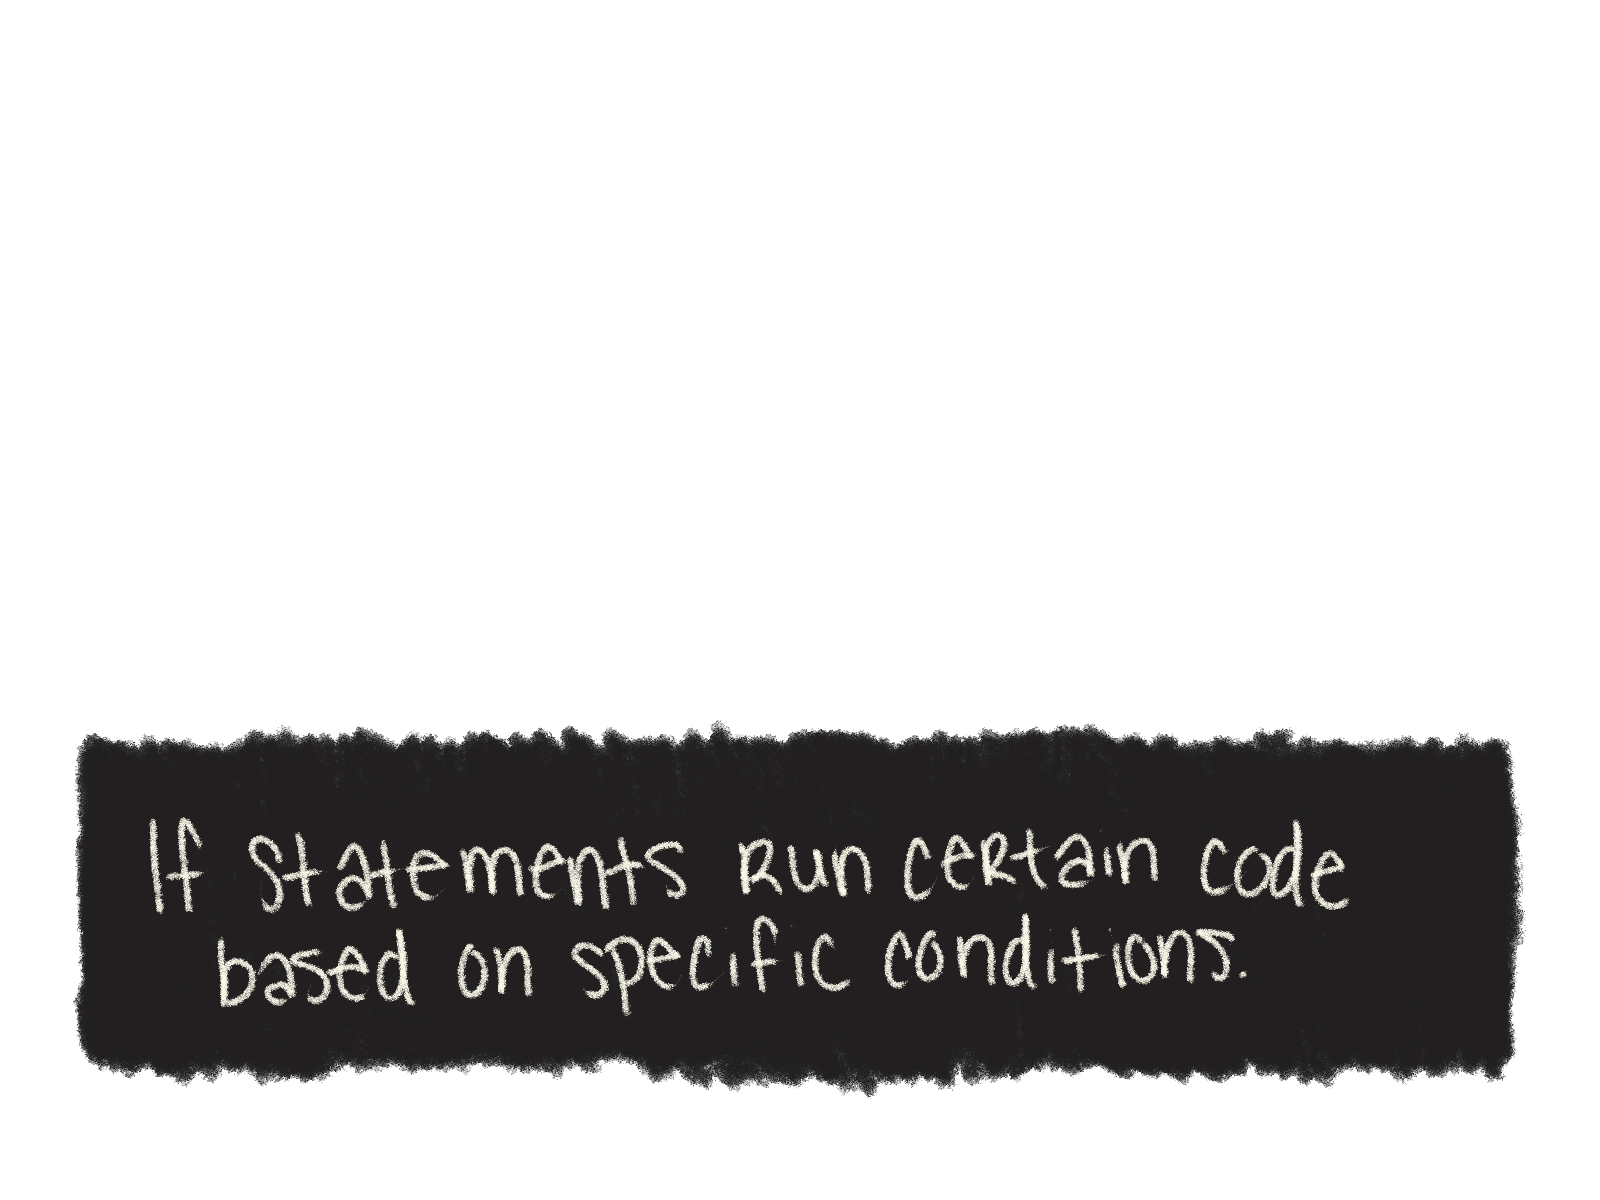 If statements run certain code
based on specific conditions.